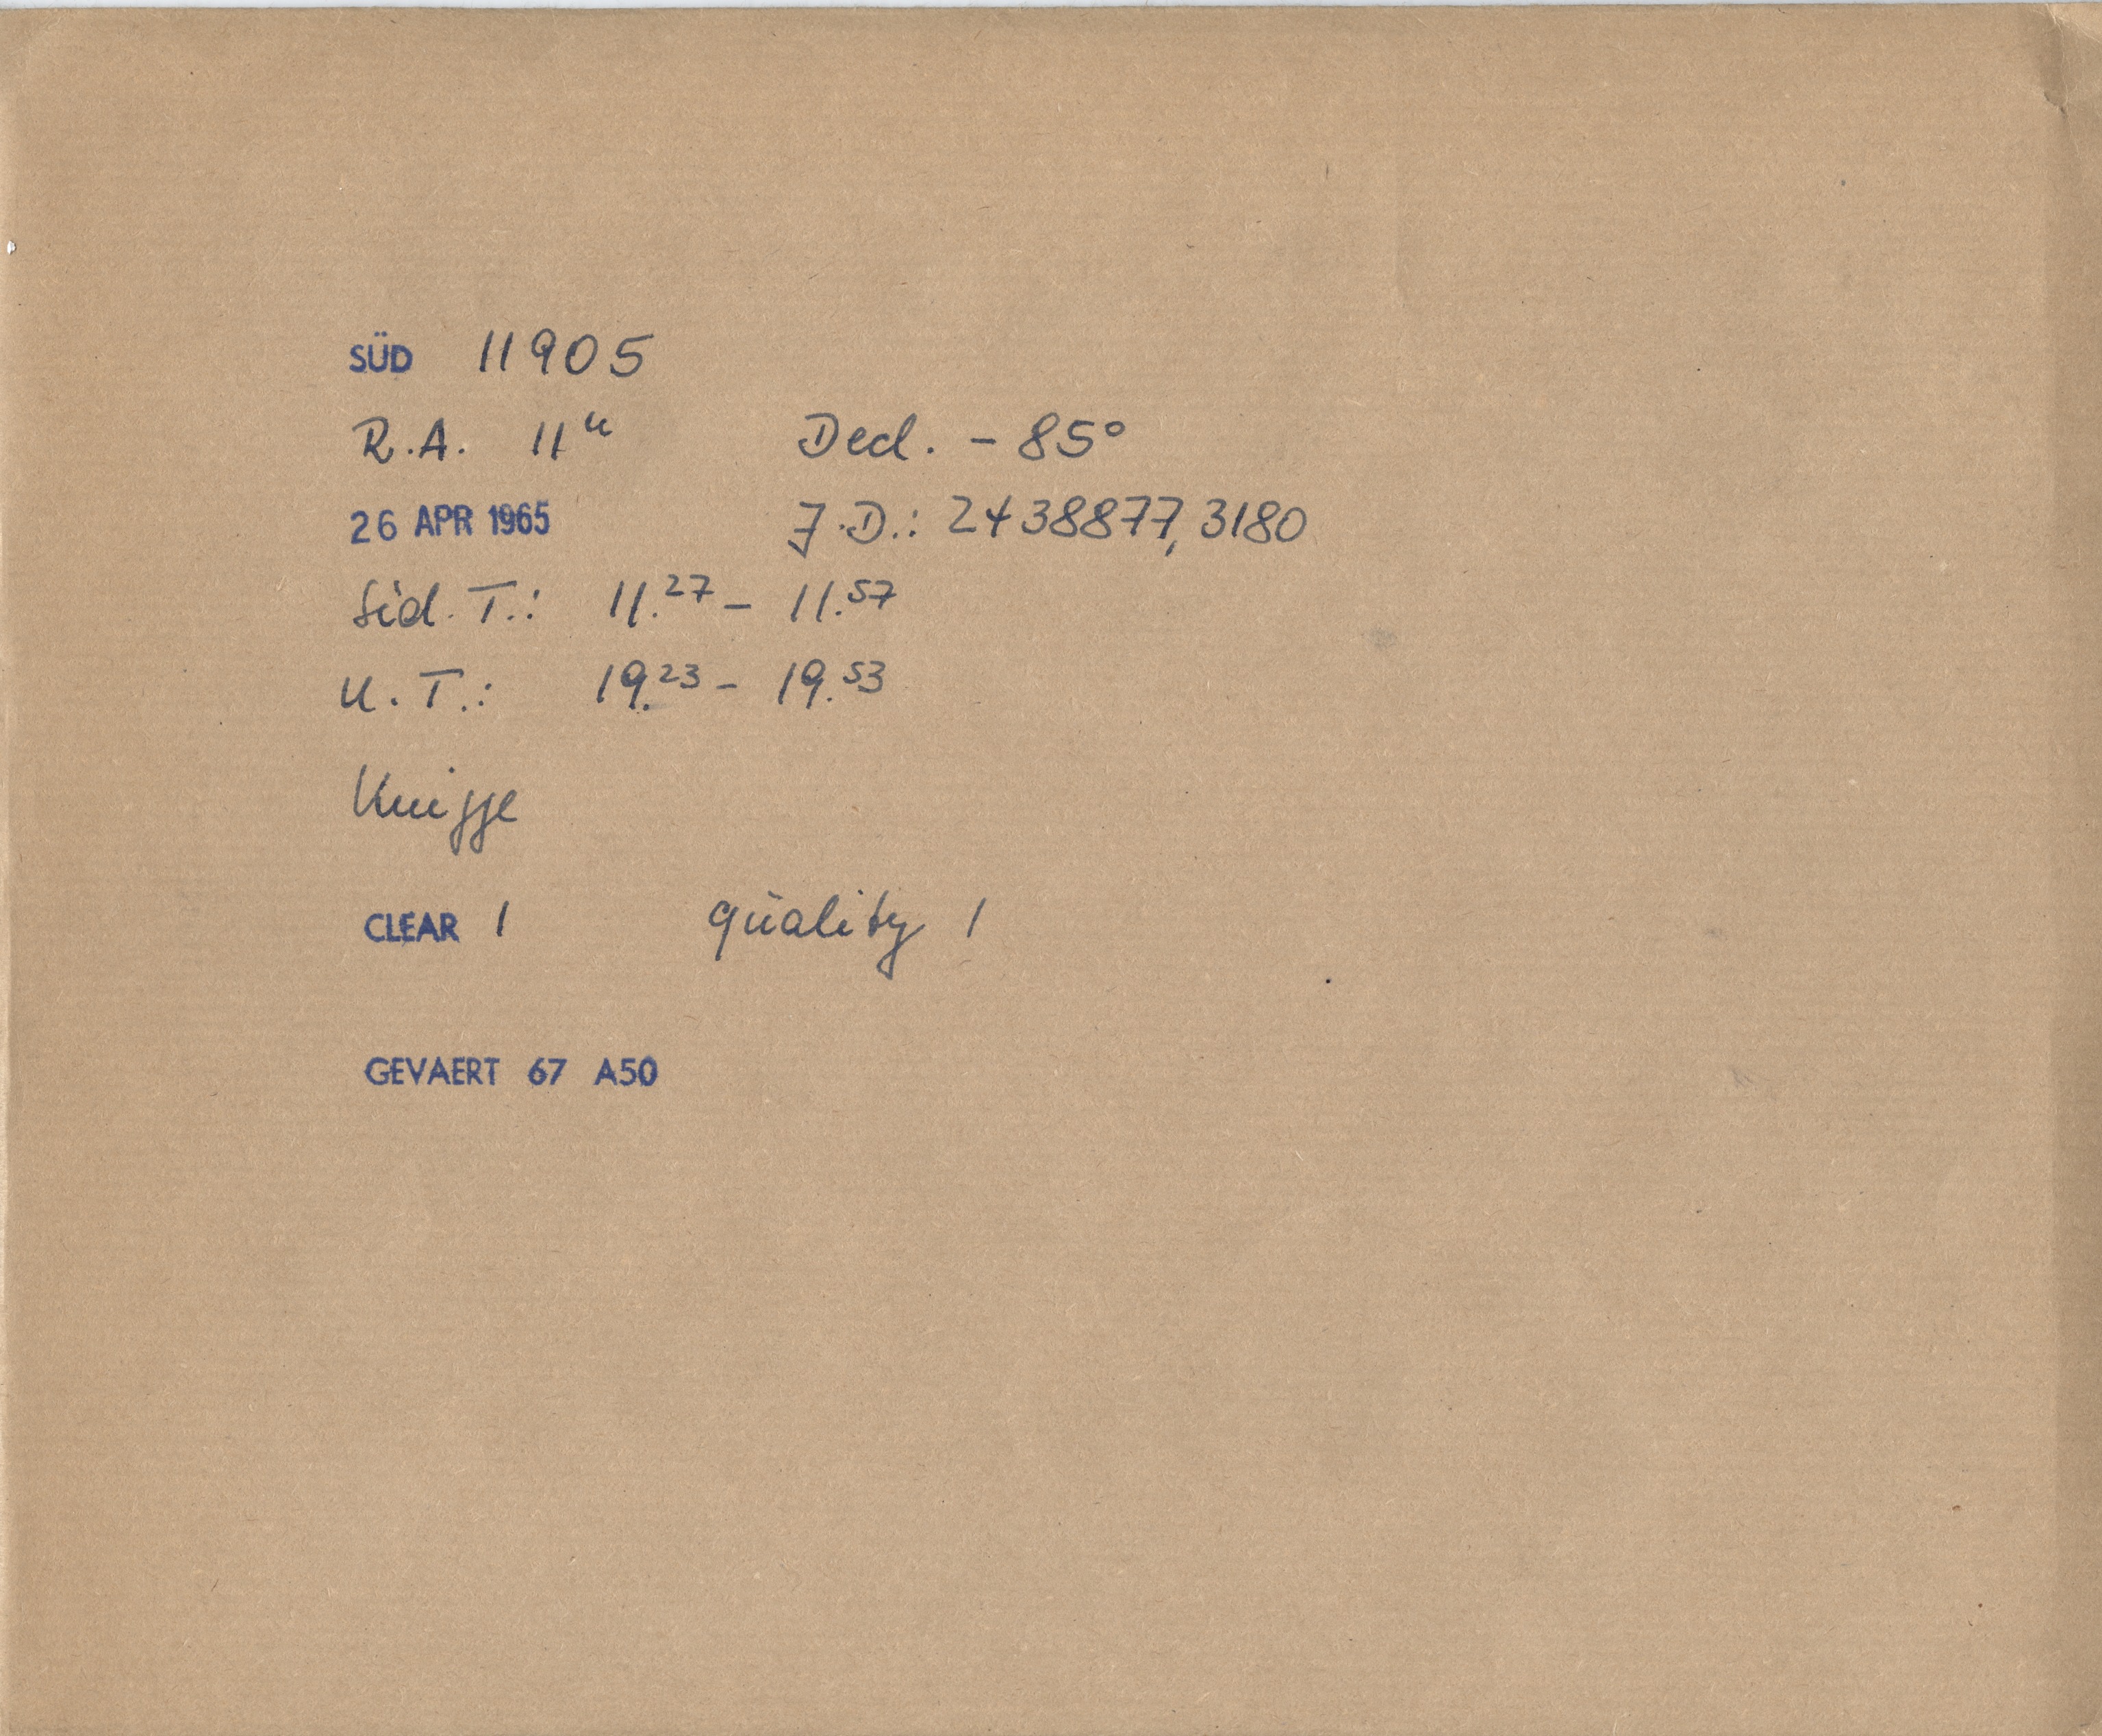 SÜD 11905
R.A. 11ʰ Decl. - 85°
26 APR 1965 J.D.: 2438877,3180
Sid. T.: 11.²⁷ - 11.⁵⁷
U.T.: 19.²³ - 19.⁵³
Knigge
CLEAR 1 quality 1
GEVAERT 67 A50